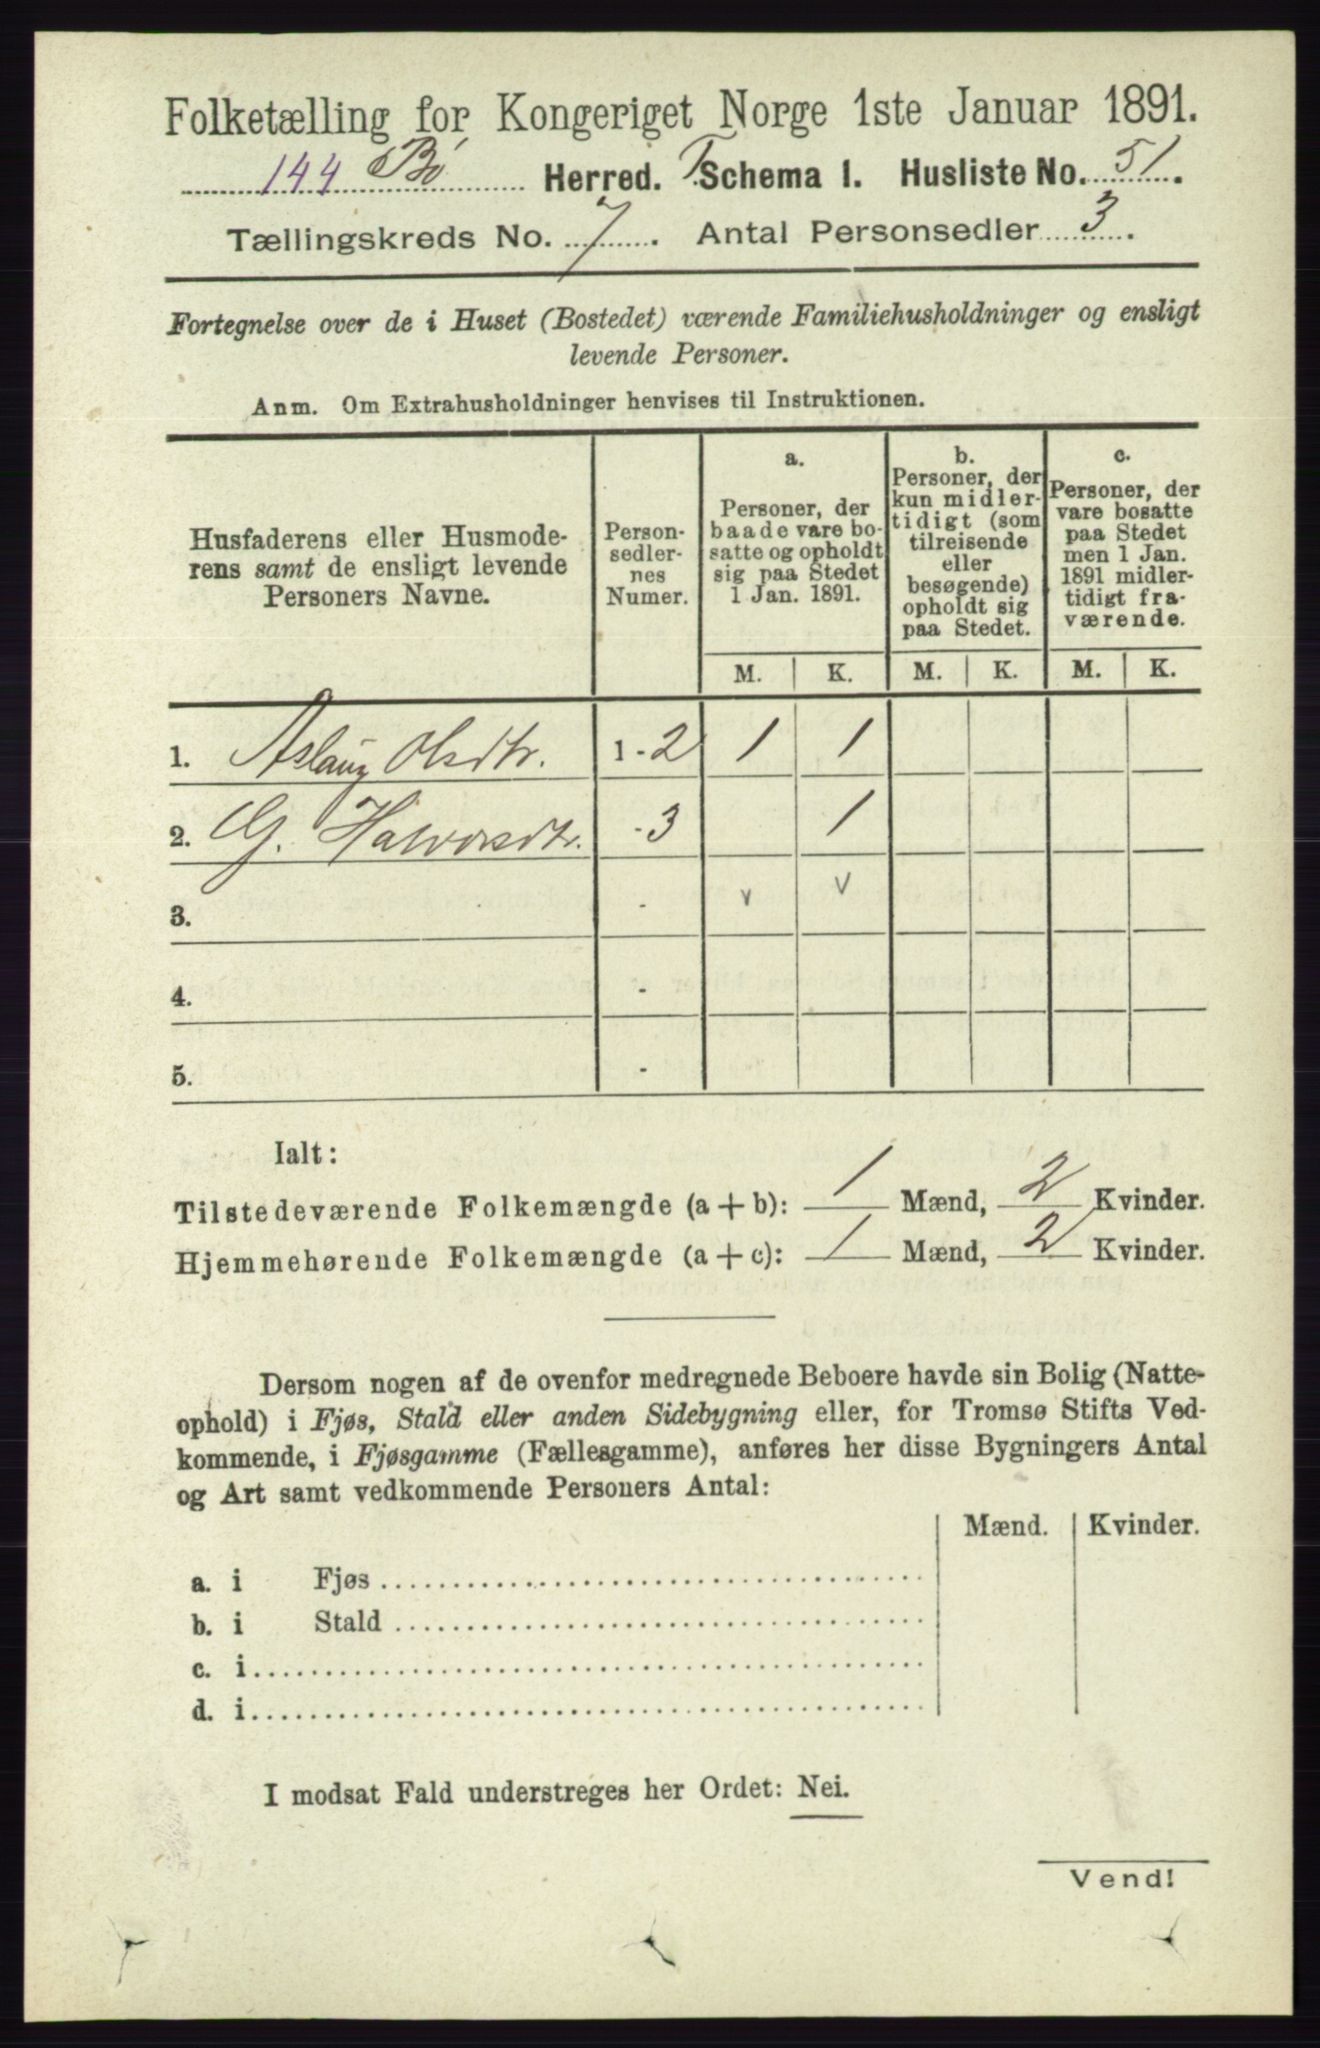 Folketælling for Kongeriget Norge 1ste Januar 1891.
144 Bö Herred. T. Schema 1. Husliste No. 51.
Tællingskreds No. 7. Antal Personsedler 3.
Fortegnelse over de i Huset (Bostedet) værende Familiehusholdninger og ensligt
levende Personer.
Anm. Om Extrahusholdninger henvises til Instruktionen.
Husfaderens eller Husmode-
rens samt de ensligt levende
Personers Navne.
Person-
sedler-
nes
Numer.
a.
Personer, der
baade vare bo-
satte og opholdt
sig paa Stedet
1 Jan. 1891.
b.
Personer, der
kun midler-
tidigt (som
tilreisende
eller
besøgende)
opholdt sig
paa Stedet.
c.
Personer, der
vare bosatte
paa Stedet
men 1 Jan.
1891 midler-
tidigt fra-
værende.
M. K. M. K. M. K.
1. Aslaug Olsdtr. 1 - 2 1 1
2. G. Halvorsdtr. - 3 1
3. - v v
4. -
5. -
Ialt:
Tilstedeværende Folkemængde (a + b): 1 Mænd, 2 Kvinder.
Hjemmehørende Folkemængde (a + c): 1 Mænd, 2 Kvinder.
Dersom nogen af de ovenfor medregnede Beboere havde sin Bolig (Natte-
ophold) i Fjøs, Stald eller anden Sidebygning eller, for Tromsø Stifts Ved-
kommende, i Fjøsgamme (Fællesgamme), anføres her disse Bygningers Antal
og Art samt vedkommende Personers Antal:
Mænd. Kvinder.
a. i Fjøs
b. i Stald
c. i
d. i
I modsat Fald understreges her Ordet: Nei.
Vend!